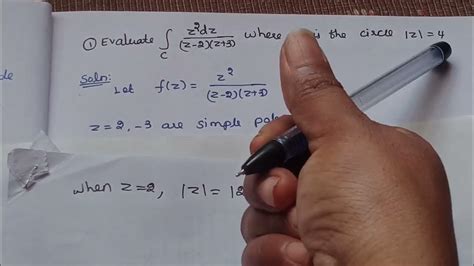 ① Evaluate ∫ z²dz / (z-2)(z+3) where is the circle |z|=4
C
Soln:
Let f(z) = z² / (z-2)(z+3)
z=2, -3 are simple
when z=2, |z|=
de